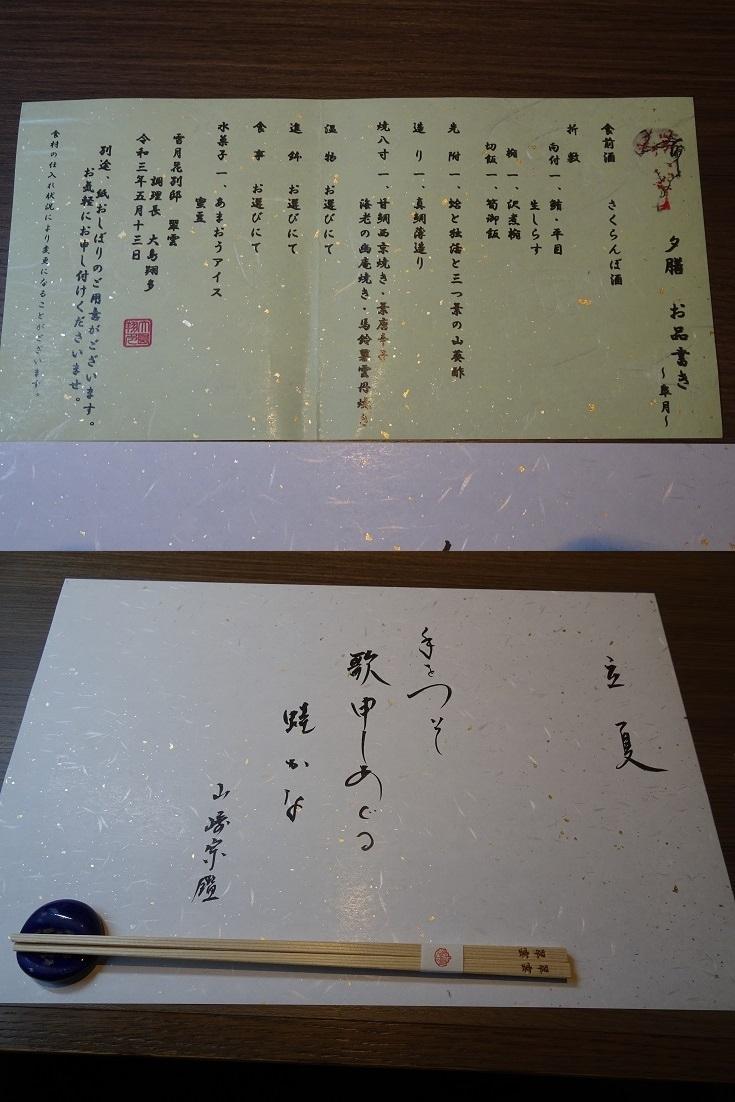 夕膳　お品書き
～皐月～
食前酒　さくらんぼ酒
折敷
向付一、鯖・平目
生しらす
椀一、沢煮椀
切飯一、筍御飯
先附一、蛤と独活と三つ葉の山葵酢
造り一、真鯛薄造り
焼八寸一、甘鯛西京焼き・葉唐辛子
海老の幽庵焼き・馬鈴薯雲丹焼き
温物　お選びにて
進鉢　お選びにて
食事　お選びにて
水菓子一、あまおうアイス
蜜豆
雪月花別邸　翠雲
調理長　大島翔多
令和三年五月十三日
別途、紙おしぼりのご用意がございます。
お気軽にお申し付けくださいませ。
食材の仕入れ状況により変更になることがございます。
立夏
手をついて
歌申しあぐる
蛙かな
山崎宗鑑
翠雲
翠雲